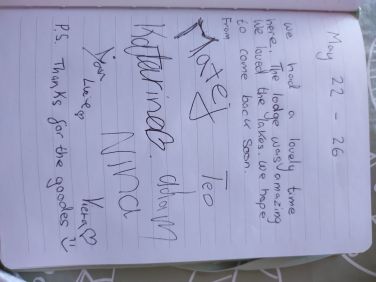 May 22 - 26
we had a lovely time
here. The lodge was amazing
We loved the lakes. We hope
to come back soon.
From
Matej Teo
Katarina. adam
Nina
Kera
P.S. Thanks for the goodes